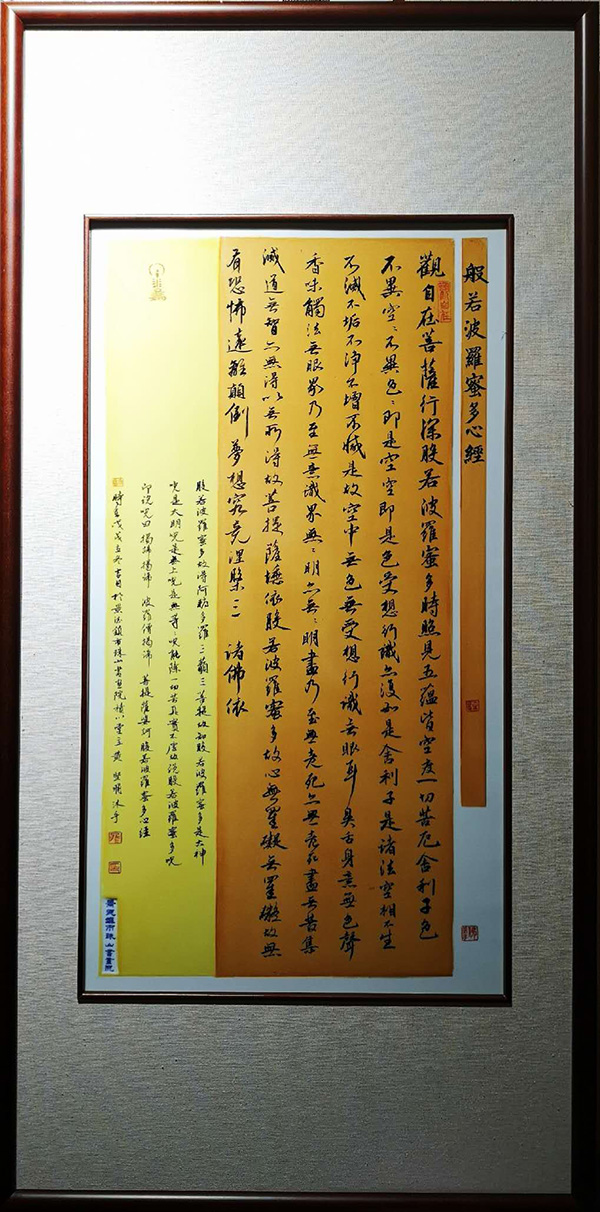 般若波羅蜜多心經
觀自在菩薩行深般若波羅蜜多時照見五蘊皆空度一切苦厄舍利子色
不異空〻不異色〻即是空空即是色受想行識亦復如是舍利子是諸法空相不生
不滅不垢不淨不增不減是故空中無色無受想行識無眼耳鼻舌身意無色聲
香味觸法無眼界乃至無意識界無〻明亦無〻明盡乃至無老死亦無老死盡無苦集
滅道無智亦無得以無所得故菩提薩埵依般若波羅蜜多故心無罣礙無罣礙故無
有恐怖遠離顛倒夢想究竟涅槃三〻諸佛依
般若波羅蜜多故得阿耨多羅三藐三菩提故知般若波羅蜜多是大神
咒是大明咒是無上咒是無等咒能除一切苦真實不虛故說般若波羅蜜多咒
即說咒曰揭諦揭諦 波羅僧揭諦 菩提薩婆訶般若波羅蜜多心經
時在戊戌孟冬吉月於景德鎮市珠山書畫院 堂主黃 沐手
景德鎮市珠山書畫院